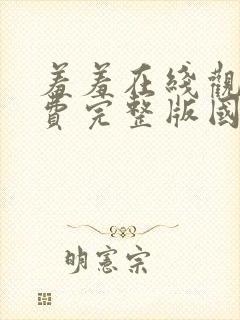 羞羞在綫觀
費完整版國
明憲宗